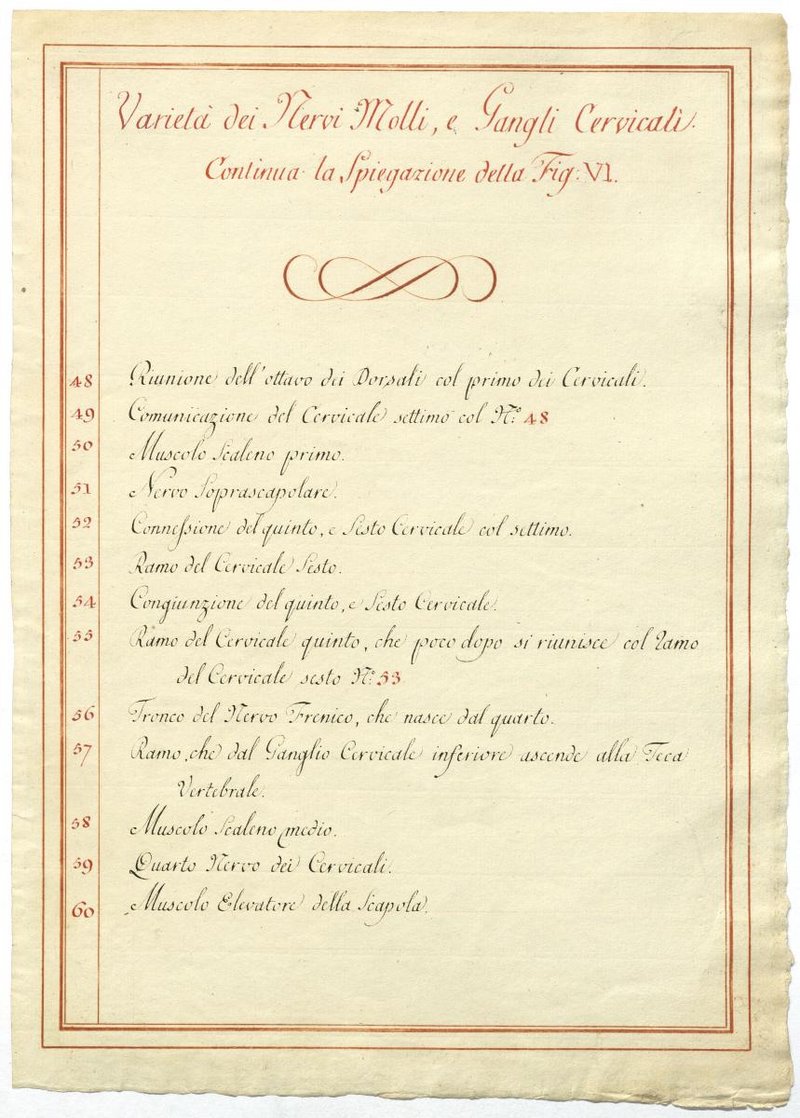 Varietà dei Nervi Molli, e Gangli Cervicali.
Continua la Spiegazione della Fig: VI.
48 Riunione dell'ottavo dei Dorsali col primo dei Cervicali.
49 Comunicazione del Cervicale settimo col N.º 48
50 Muscolo Scaleno primo.
51 Nervo Soprascapolare.
52 Connessione del quinto, e Sesto Cervicale col settimo.
53 Ramo del Cervicale Sesto.
54 Congiunzione del quinto, e Sesto Cervicale.
55 Ramo del Cervicale quinto, che poco dopo si riunisce col ramo
del Cervicale sesto N.º 53
56 Tronco del Nervo Frenico, che nasce dal quarto.
57 Ramo, che dal Ganglio Cervicale inferiore ascende alla Teca
Vertebrale.
58 Muscolo Scaleno medio.
59 Quarto Nervo dei Cervicali.
60 Muscolo Elevatore della Scapola.